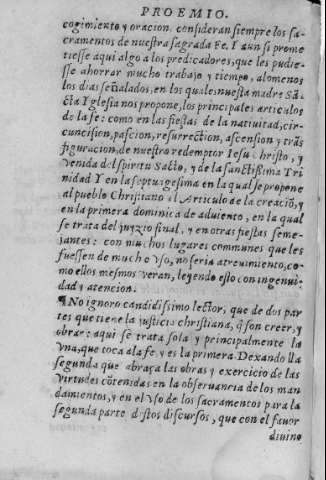 PROEMIO.
cogimiento y oracion, consideran siempre los sa-
cramentos de nuestra sagrada Fe. Y aun si prome
tiesse aqui algo a los predicadores, que les pudie-
sse ahorrar mucho trabajo y tiempo, alomenos
los dias señalados, en los quales nuesta madre Sã-
cta Yglesia nos propone, los principales articulos
de la fe: como en las fiestas de la natiuitad, cir-
cuncision, passion, resurrection, ascension y trãs
figuracion, de nuestro redemptor Iesu Christo, y
venida del spiritu Sãcto, y de la sanctissima Tri
nidad Y en la septuagesima en la qual se propone
al pueblo Christiano el Articulo de la creaciõ, y
en la primera dominica de aduiento, en la qual
se trata del juyzio final, y en otras fiestas seme-
jantes: con muchos lugares communes que les
fuessen de mucho vso, no seria atreuimiento, co-
mo ellos mesmos veran, leyendo esto con ingenui-
dad y atencion.
¶ No ignoro candidissimo lector, que de dos par
tes que tiene la justicia christiana, q̃ son creer, y
obrar: aqui se trata sola y principalmente la
vna, que toca a la fe, y es la primera. Dexando ll a
segunda que abraça las obras y exercicio de las
virtudes cõtenidas en la obseruancia de los man
damientos, y en el vso de los sacramentos para la
segunda parte destos discursos, que con el fauor
diuino